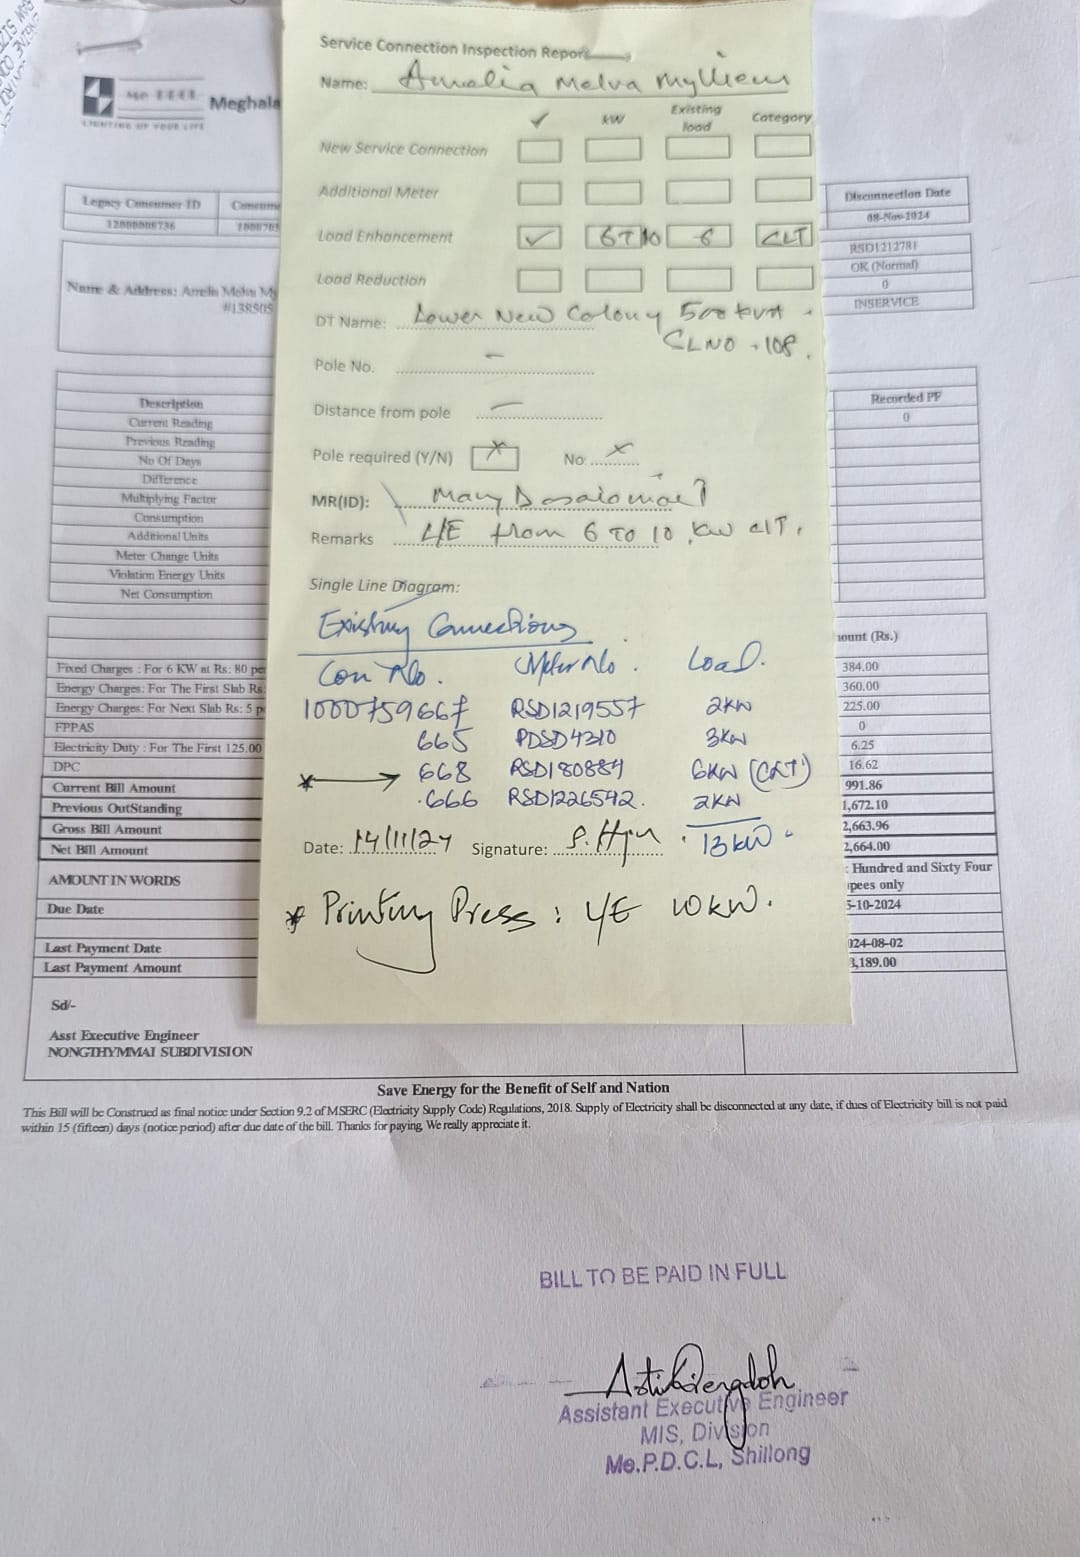 LIGHTING UP YOUR LIFE
Meghala
Legacy Consumer ID Consume
12000008736 1000705
Name & Address: Amelia Melva My
#138505
Disconnection Date
08-Nov-2024
RSD1212781
OK (Normal)
0
INSERVICE
Service Connection Inspection Report
Name: Amelia Melva Mylliem
✓ kW Existing load Category
New Service Connection
Additional Meter
Load Enhancement ✓ 6 TO 10 6 CLT
Load Reduction
DT Name: Lower New Colony 500 kVA
CLNO - 108.
Pole No. –
Distance from pole –
Pole required (Y/N) × No. ×
MR(ID): Mary
Remarks L/E from 6 TO 10 kW CLT.
Single Line Diagram:
Existing Connections
Con No. Meter No. Load.
1000759667 RSD1219557 2KW
665 PDSD4310 3KW
* → 668 RSD180884 6KW (CLT)
.666 RSD1226542. 2KW
Date: 14/11/24 Signature: 13 kW
* Printing Press : L/E 10 KW.
Description
Current Reading
Previous Reading
No Of Days
Difference
Multiplying Factor
Consumption
Additional Units
Meter Change Units
Violation Energy Units
Net Consumption
Recorded PF
0
ount (Rs.)
Fixed Charges : For 6 KW at Rs: 80 pe 384.00
Energy Charges: For The First Slab Rs 360.00
Energy Charges: For Next Slab Rs: 5 p 225.00
FPPAS 0
Electricity Duty : For The First 125.00 6.25
DPC 16.62
Current Bill Amount 991.86
Previous OutStanding 1,672.10
Gross Bill Amount 2,663.96
Net Bill Amount 2,664.00
AMOUNT IN WORDS : Hundred and Sixty Four
pees only
Due Date 5-10-2024
Last Payment Date 024-08-02
Last Payment Amount 3,189.00
Sd/-
Asst Executive Engineer
NONGTHYMMAI SUBDIVISION
Save Energy for the Benefit of Self and Nation
This Bill will be Construed as final notice under Section 9.2 of MSERC (Electricity Supply Code) Regulations, 2018. Supply of Electricity shall be disconnected at any date, if dues of Electricity bill is not paid
within 15 (fifteen) days (notice period) after due date of the bill. Thanks for paying, We really appreciate it.
BILL TO BE PAID IN FULL
Assistant Executive Engineer
MIS, Division
Me.P.D.C.L, Shillong